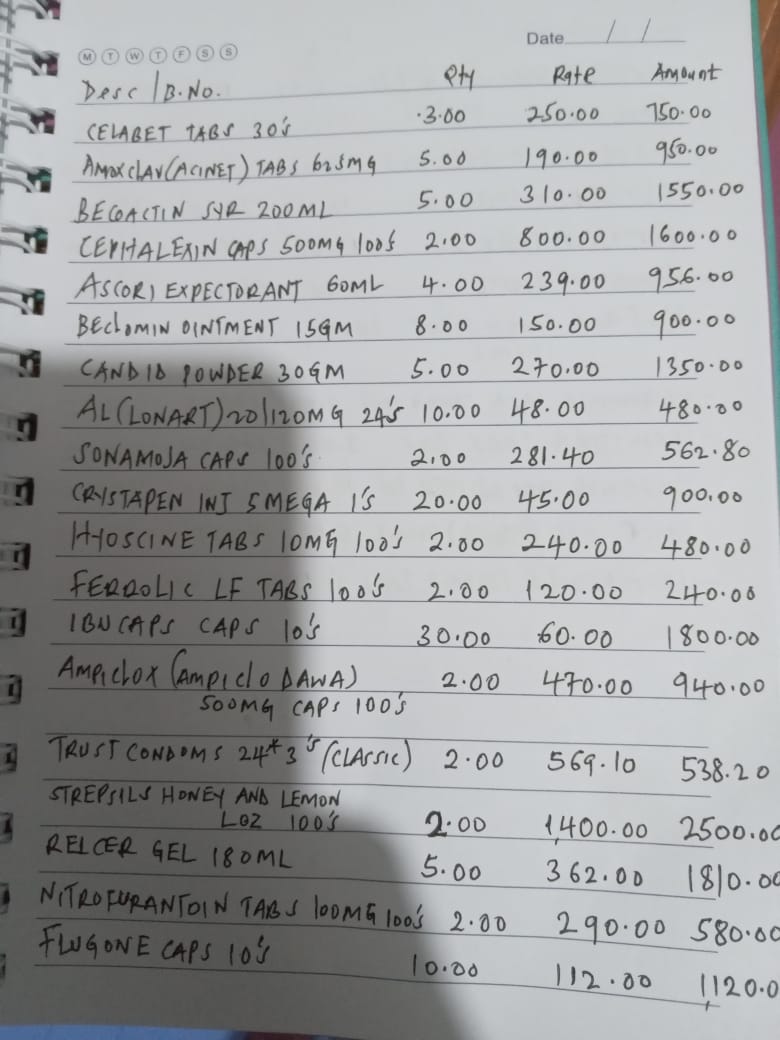 Date / /
M T W T F S S
Desc / B.No. Qty Rate Amount
CELABET TABS 30's 3.00 250.00 750.00
AMOXCLAV (ACINET) TABS 625MG 5.00 190.00 950.00
BECOACTIN SYR 200ML 5.00 310.00 1550.00
CEPHALEXIN CAPS 500MG 100's 2.00 800.00 1600.00
ASCORI EXPECTORANT 60ML 4.00 239.00 956.00
BEClOMIN OINTMENT 15GM 8.00 150.00 900.00
CANDID POWDER 30GM 5.00 270.00 1350.00
AL (LONART) 20/120MG 24's 10.00 48.00 480.00
SONAMOJA CAPS 100's 2.00 281.40 562.80
CRYSTAPEN INJ 5MEGA 1's 20.00 45.00 900.00
HYOSCINE TABS 10MG 100's 2.00 240.00 480.00
FERROLIC LF TABS 100's 2.00 120.00 240.00
IBUCAPS CAPS 10's 30.00 60.00 1800.00
AMPICLOX (AMPICLO DAWA) 2.00 470.00 940.00
500MG CAPS 100's
TRUST CONDOMS 24*3's (CLASSIC) 2.00 569.10 538.20
STREPSILS HONEY AND LEMON
LOZ 100's 2.00 1,400.00 2500.00
RELCER GEL 180ML 5.00 362.00 1810.00
NITROFURANTOIN TABS 100MG 100's 2.00 290.00 580.00
FLUGONE CAPS 10's 10.00 112.00 1120.0